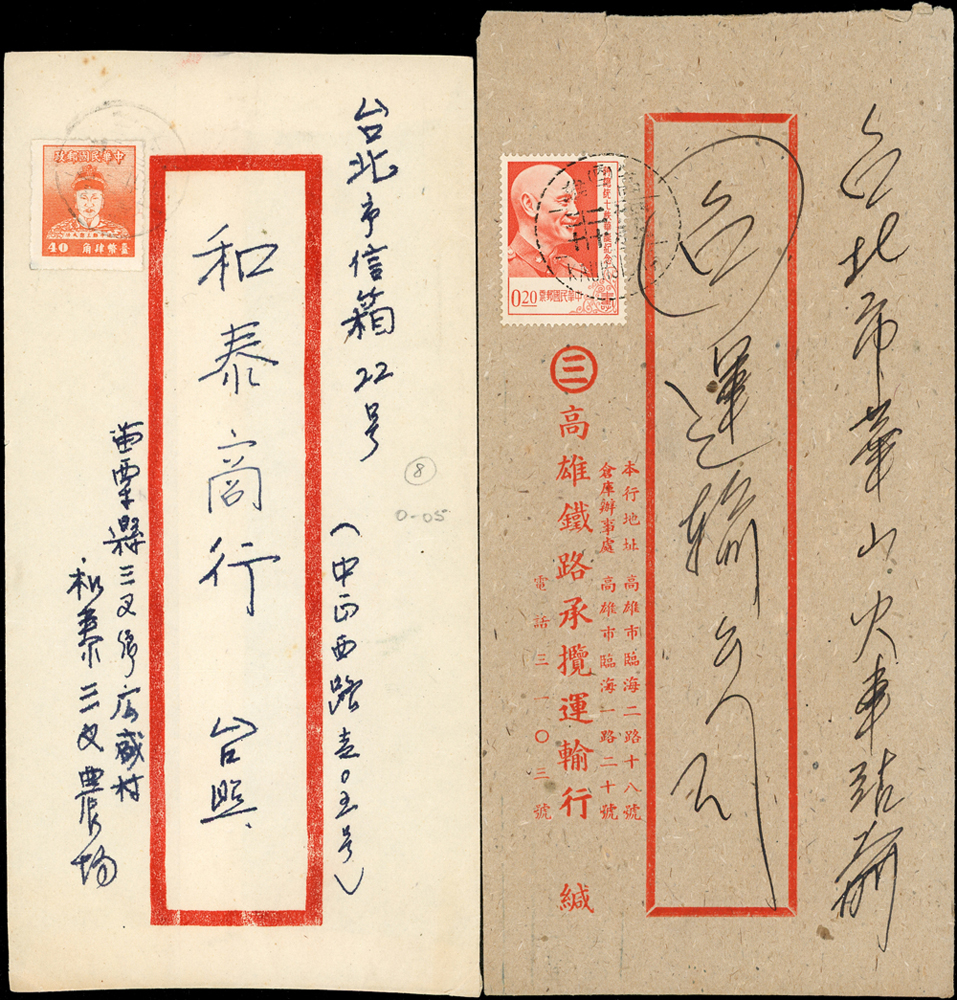 台北市信箱22号
(中正西路壹〇五号)
和泰商行 台照
中華民國郵政
40 臺幣肆角
苗栗縣三叉鄉広盛村
和泰三叉農場
8
0-05
台北市華山火車站前
台運輸公司
蔣總統
0.20
中華民國郵票
三
本行地址 高雄市臨海二路十八號
倉庫辦事處 高雄市臨海一路二十號
電話三一〇三號
高雄鐵路承攬運輸行 緘